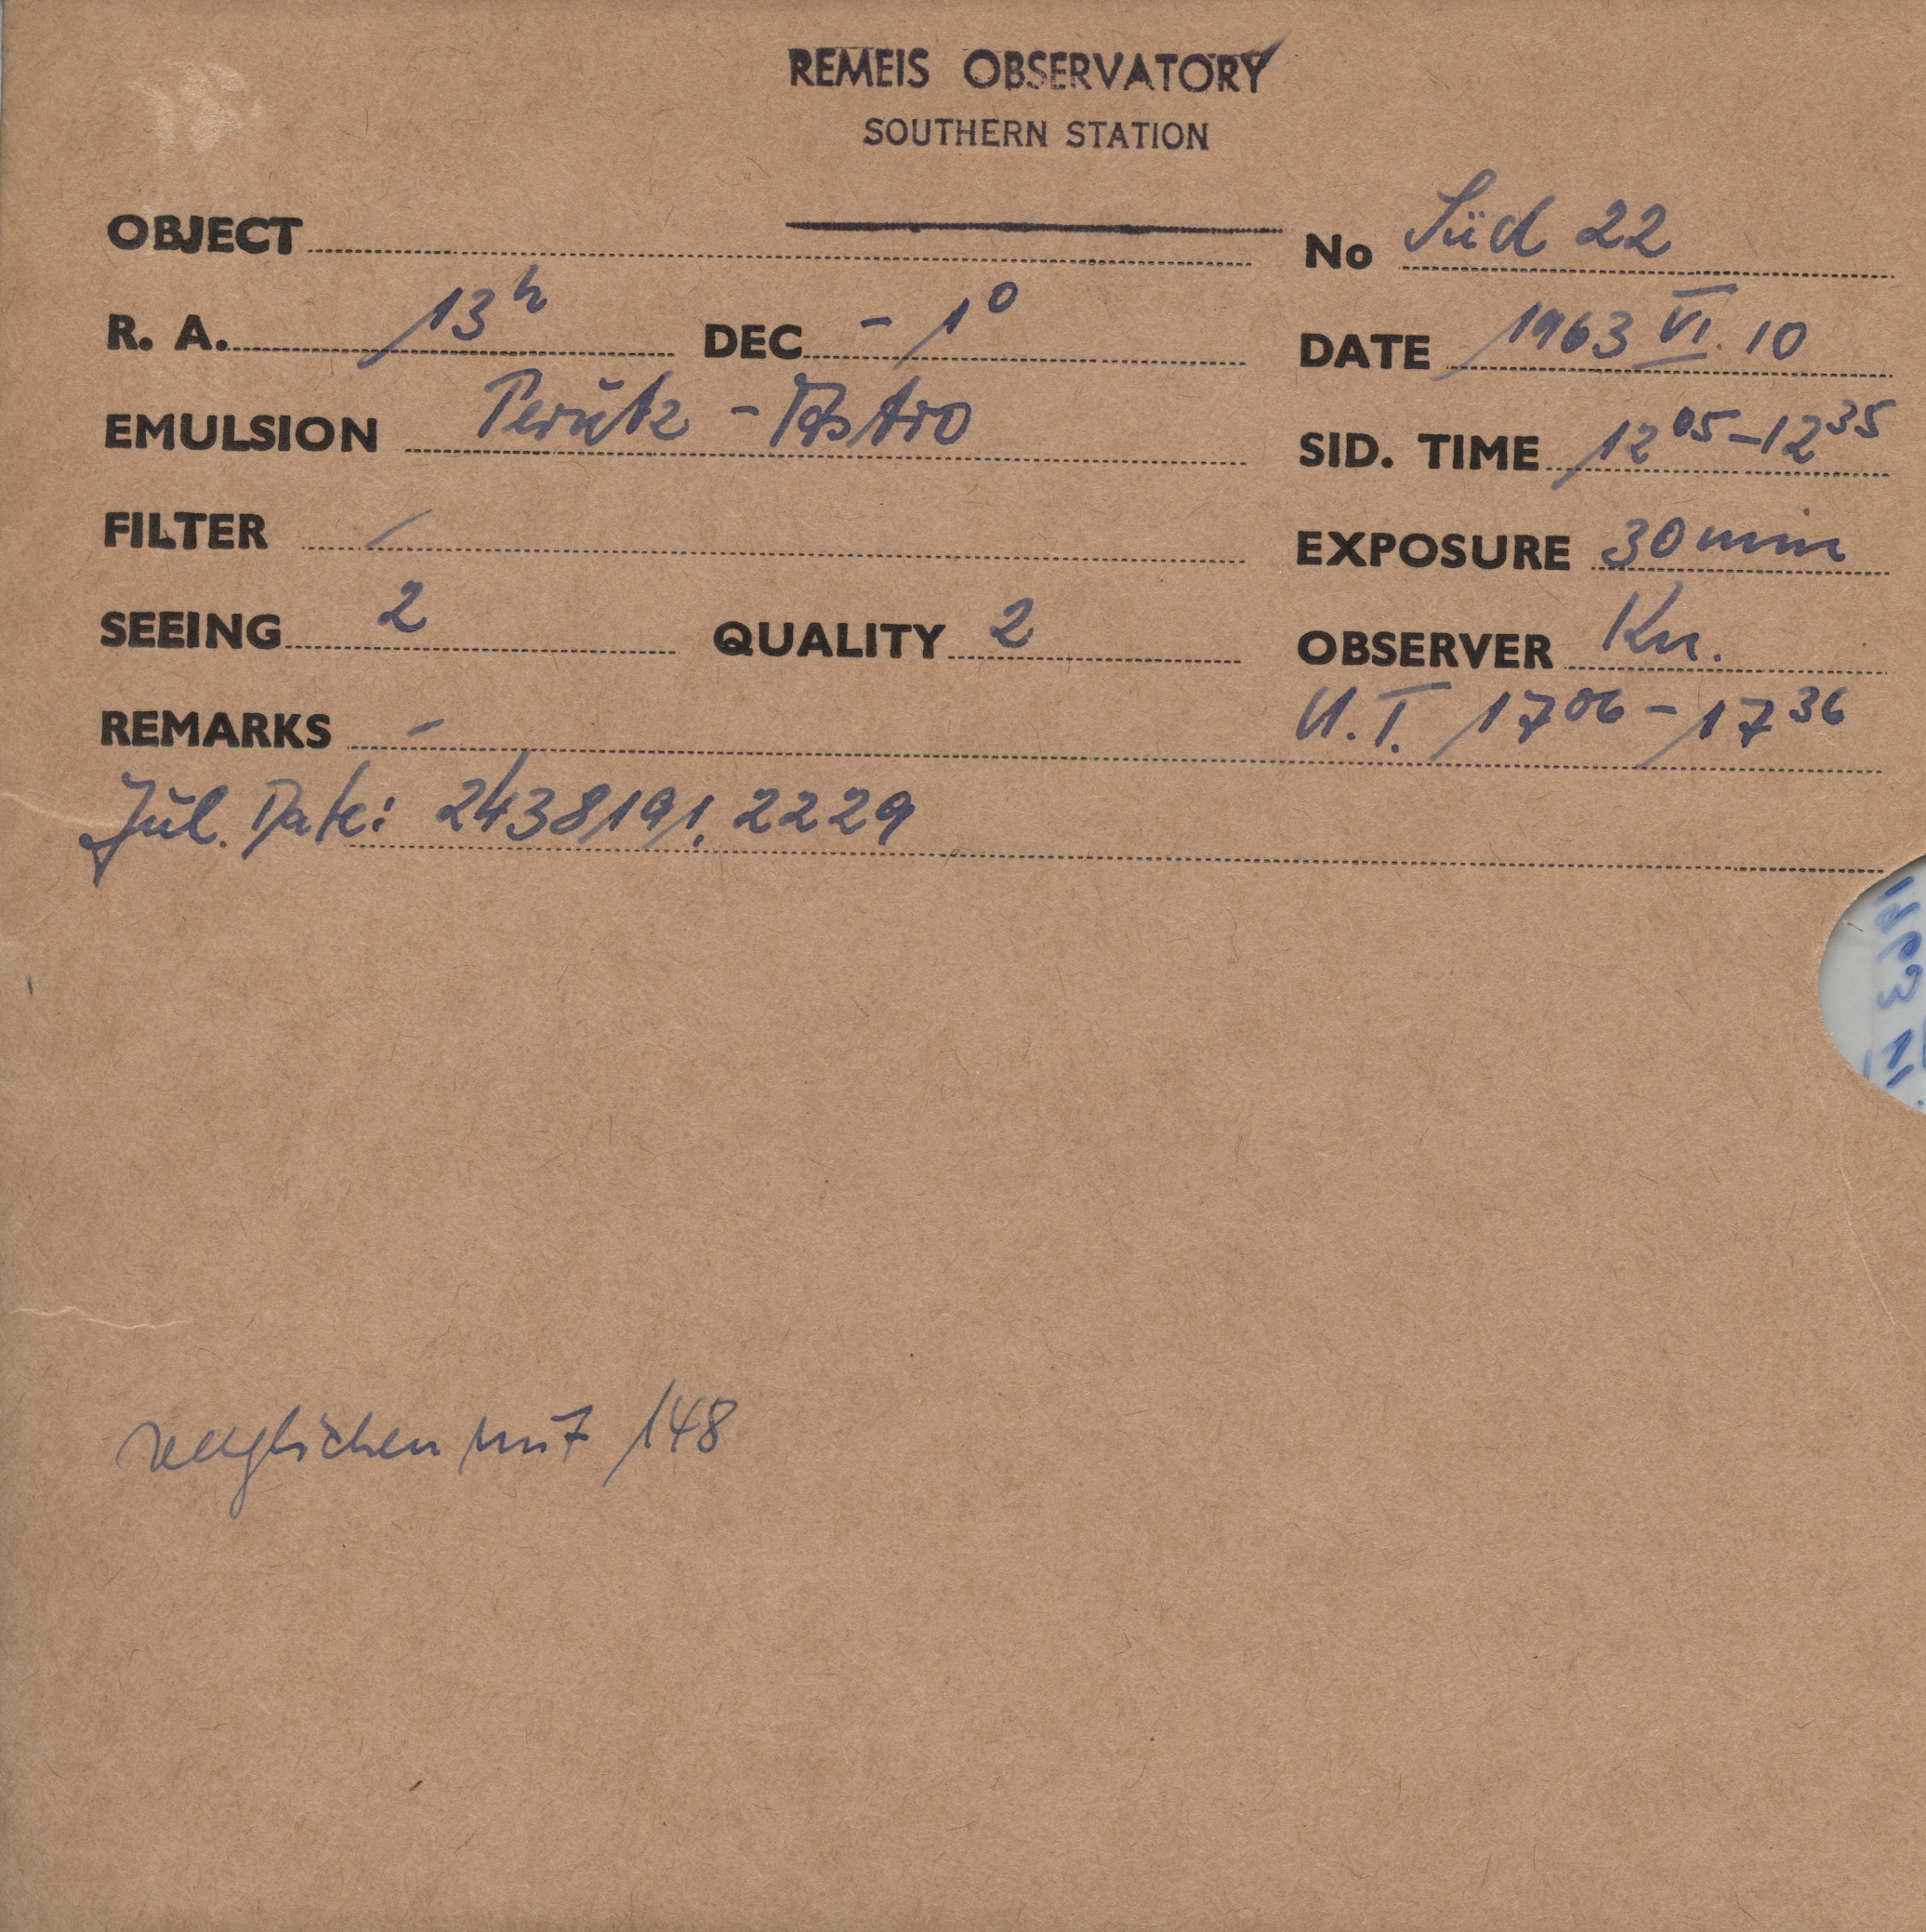 REMEIS OBSERVATORY
SOUTHERN STATION
OBJECT No Süd 22
R. A. 13h DEC - 1° DATE 1963 VI. 10
EMULSION Perutz - Astro SID. TIME 12 05 - 12 35
FILTER / EXPOSURE 30 min
SEEING 2 QUALITY 2 OBSERVER Kn.
REMARKS - U.T. 17 06 - 17 36
Jul. Date: 2438191,2229
verglichen mit 148